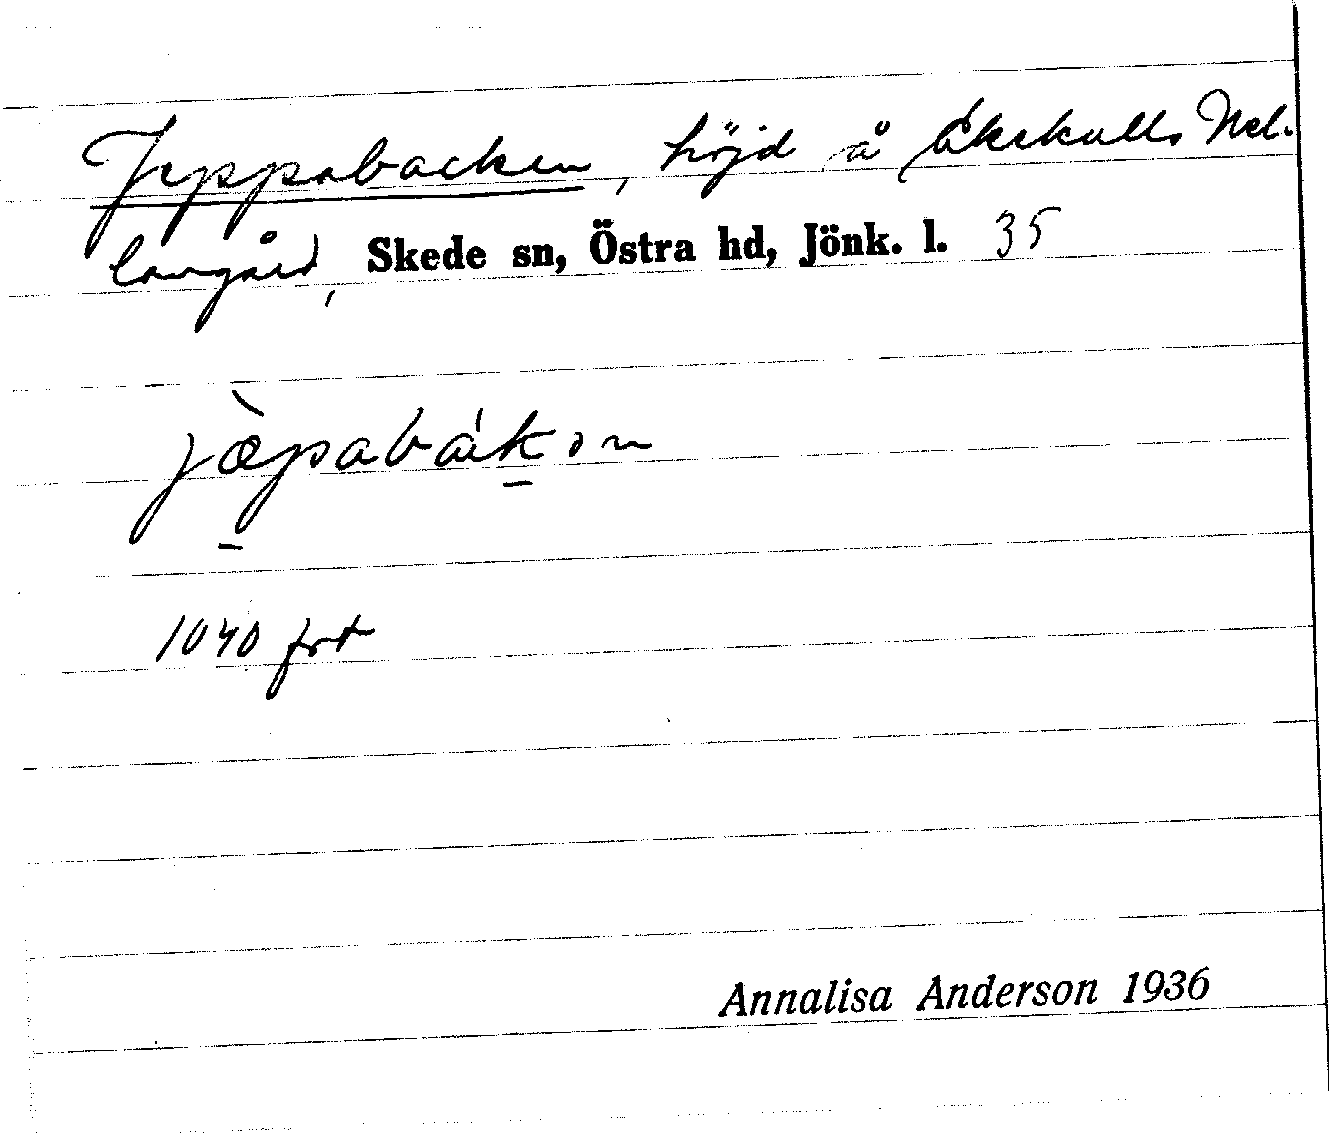 Jeppabacken, höjd å Åkekulls Mel-
langård, Skede sn, Östra hd, Jönk. l. 35
jæ̀pabákən
1040 fot
Annalisa Anderson 1936